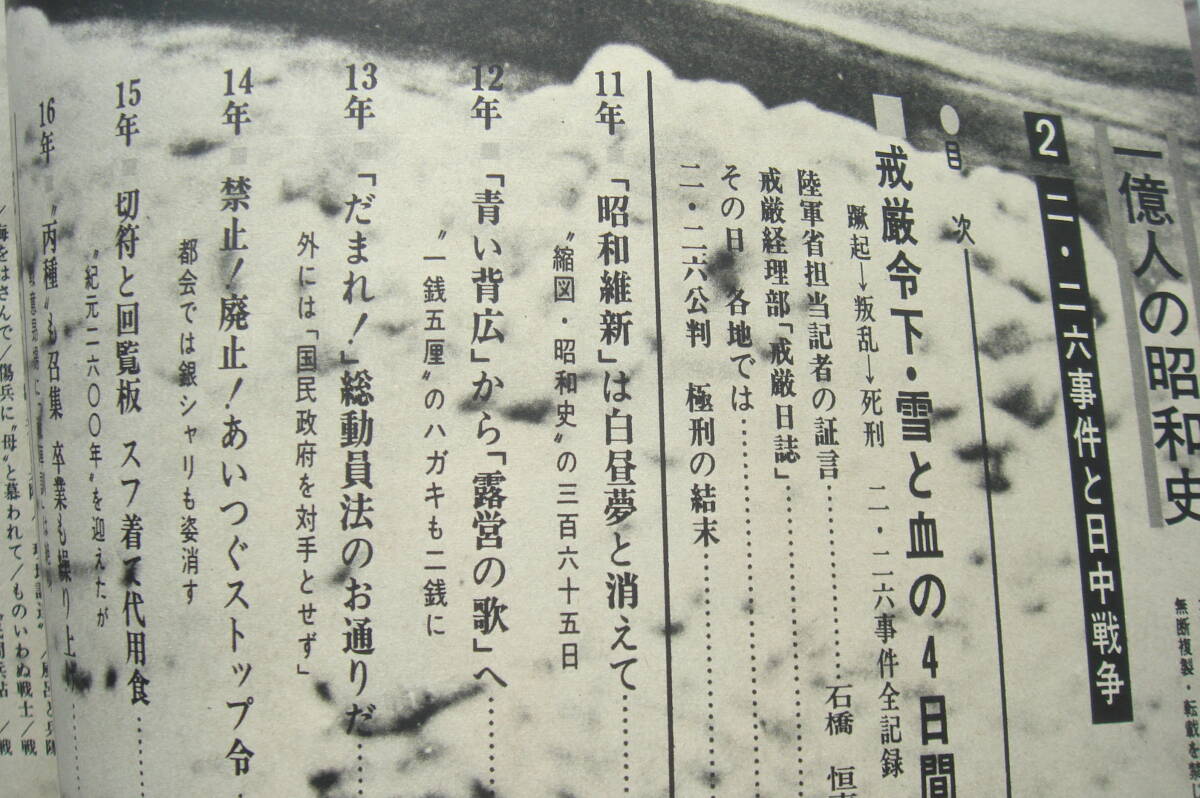 一億人の昭和史
2 二・二六事件と日中戦争
無断複製・転載を禁
●目次
■戒厳令下・雪と血の4日間
蹶起→叛乱→死刑 二・二六事件全記録
陸軍省担当記者の証言……石橋 恒
戒厳経理部「戒厳日誌」……
その日 各地では……
二・二六公判 極刑の結末……
11年■「昭和維新」は白昼夢と消えて……
〝縮図・昭和史〟の三百六十五日
12年■「青い背広」から「露営の歌」へ……
〝一銭五厘〟のハガキも二銭に
13年■「だまれ!」総動員法のお通りだ……
外には「国民政府を対手とせず」
14年■禁止!廃止!あいつぐストップ令
都会では銀シャリも姿消す
15年■切符と回覧板 スフ着て代用食……
〝紀元二六〇〇年〟を迎えたが
16年■〝丙種〟も召集 卒業も繰り上げ……
/海をはさんで/傷兵に〝母〟と慕われて/ものいわぬ戦士/戦